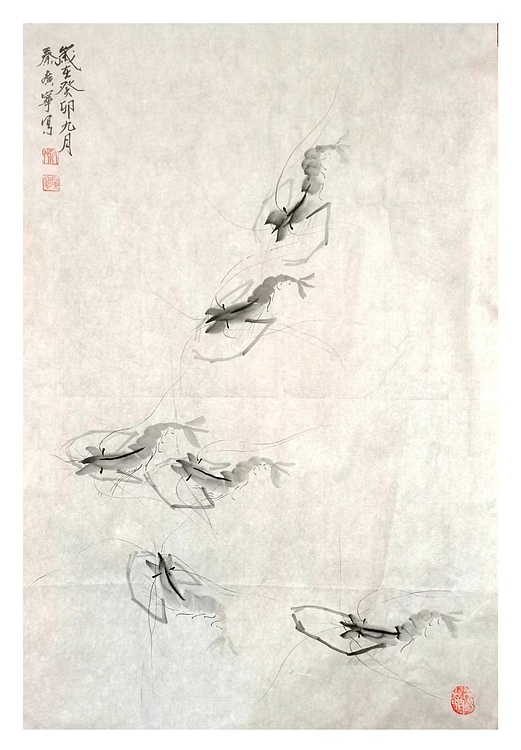 歲在癸卯九月
秦廣寧寫